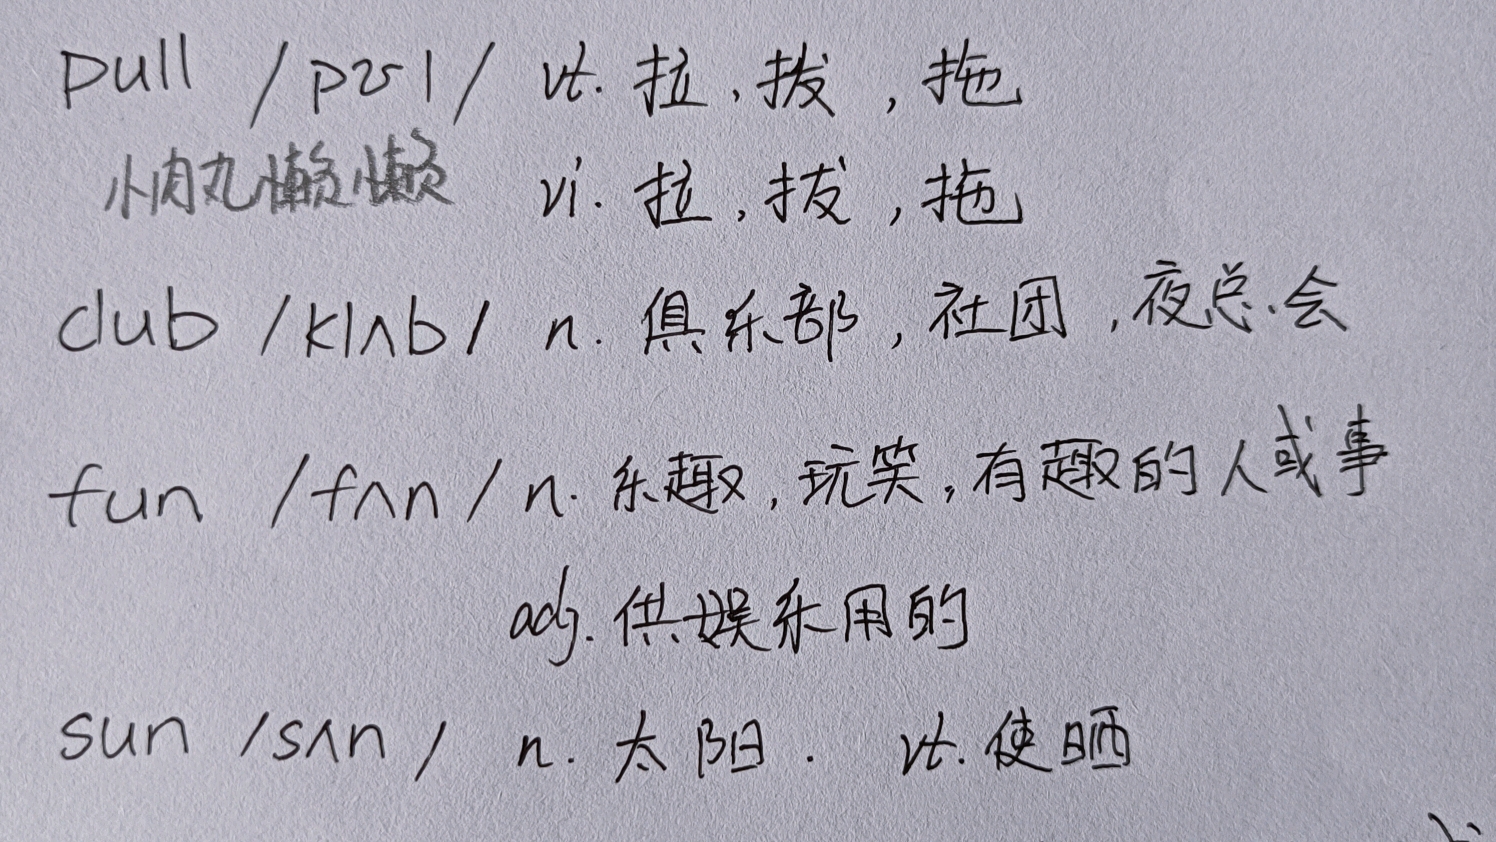 pull /pʊl/ vt. 拉，拔，拖
小肉丸懒懒 vi. 拉，拔，拖
club /klʌb/ n. 俱乐部，社团，夜总会
fun /fʌn/ n. 乐趣，玩笑，有趣的人或事
adj. 供娱乐用的
sun /sʌn/ n. 太阳. vt. 使晒